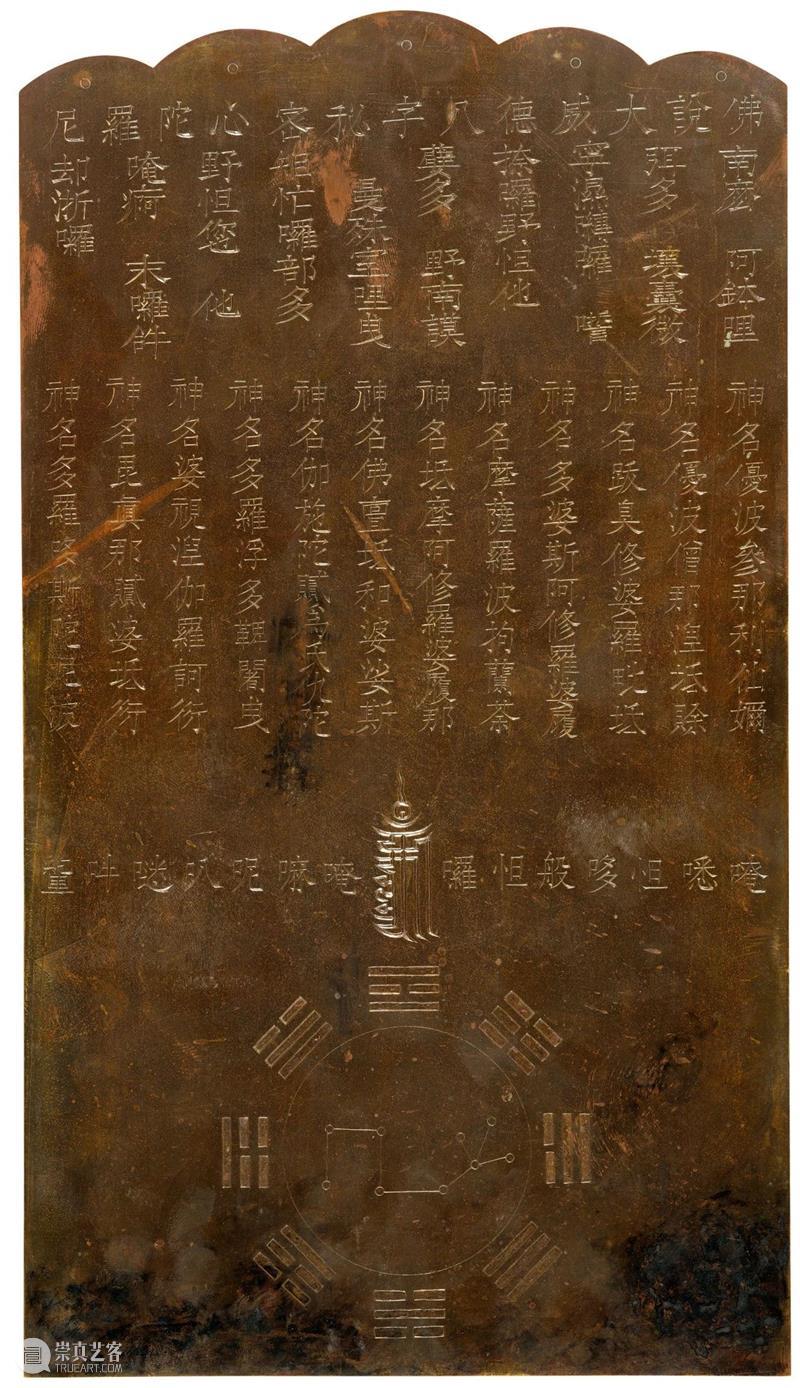 佛說大威德八字秘密心陀羅尼
南麼 阿鉢哩
弭多 壤囊微
寧濕 羅
捺囉野怛他
多 野南謨
曼殊室哩曳
忙囉部多
野怛您 他
唵痾 末囉
却浙囉
神名優波參那利仙嬭
神名優波僧那涅坻賒
神名跃臭修婆羅毗坻
神名多婆斯阿修羅婆履
神名摩薩羅波拘蘭荼
神名坻摩阿修羅婆履那
神名佛曹坻和婆娑斯
神名伽旎陀貳
神名多羅浮多鞞闍曳
神名婆視涅伽羅訶衍
神名毘真那貳婆坻衍
神名多羅多斯陀尼波
唵悉怛哆般怛囉
唵嘛呢叭咪吽
崇真艺客
TRUEART.COM